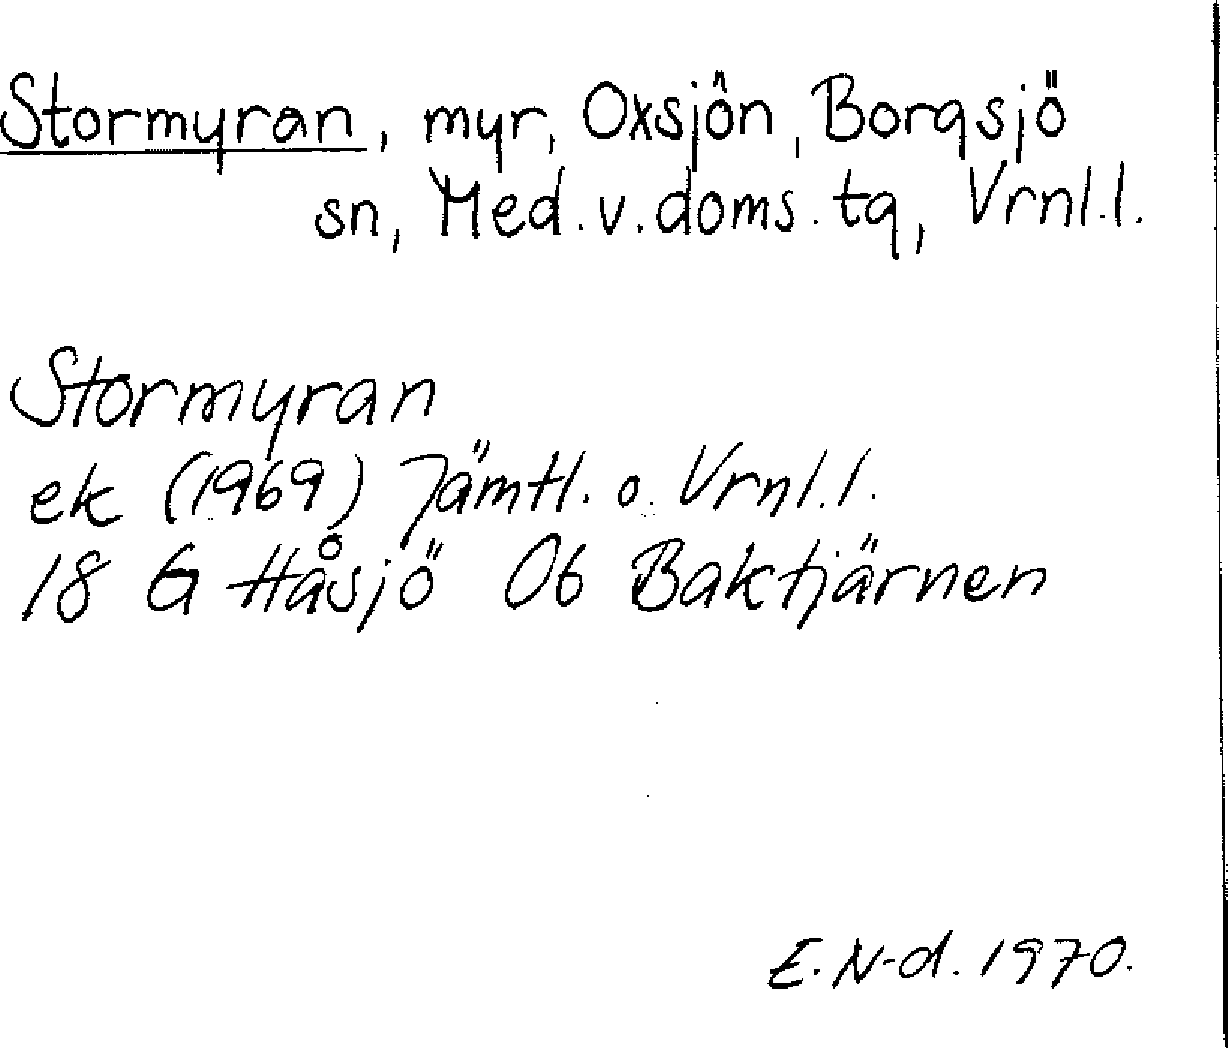 Stormyran, myr, Oxsjön, Borgsjö
sn, Med. v. doms. tg, Vrnl. l.
Stormyran
ek (1969) Jämtl. o. Vrnl. l.
18 G Håsjö 06 Baktjärnen
E. N-d. 1970.